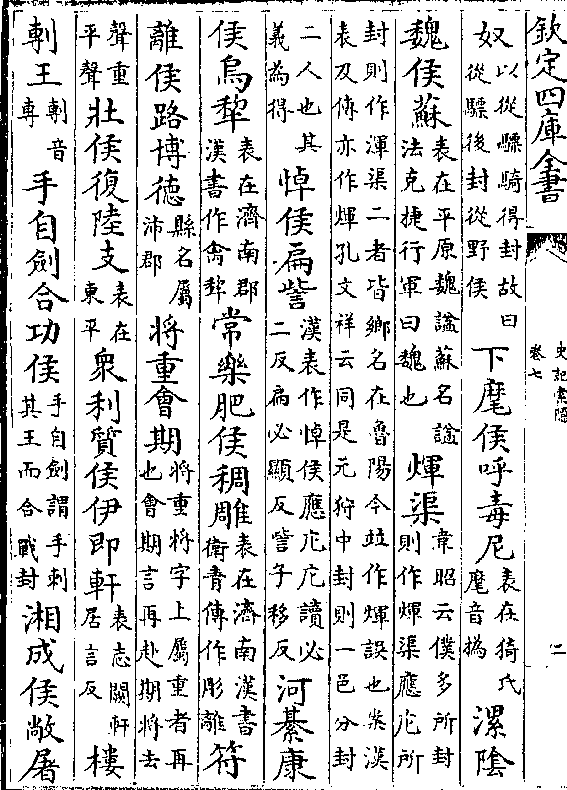 欽定四庫全書
史記索隱
卷七
二
奴以從驃騎得封故曰從驃後封從野侯下麾侯呼毒尼表在猗氏麾音撝漯陰
魏侯蘇表在平原魏諡蘇名諡法克捷行軍曰魏也煇渠韋昭云僕多所封則作煇渠應疕所
封則作渾渠二者皆鄉名在魯陽今竝作煇誤也案漢表及傳亦作煇孔文祥云同是元狩中封則一邑分封
二人也其義為得悼侯扁訾漢表作悼侯應疕疕讀必二反扁必顯反訾子移反河綦康
侯烏犂表在濟南郡漢書作禽犂常樂肥侯稠雕表在濟南漢書衛青傳作彫離符
離侯路博德縣名屬沛郡將重會期將重將字上屬重者再也會期言再赴期將去
聲重平聲壯侯復陸支表在東平衆利質侯伊即軒表志闕軒居言反樓
剸王剸音專手自劍合功侯手自劍謂手刺其王而合戰封湘成侯敞屠